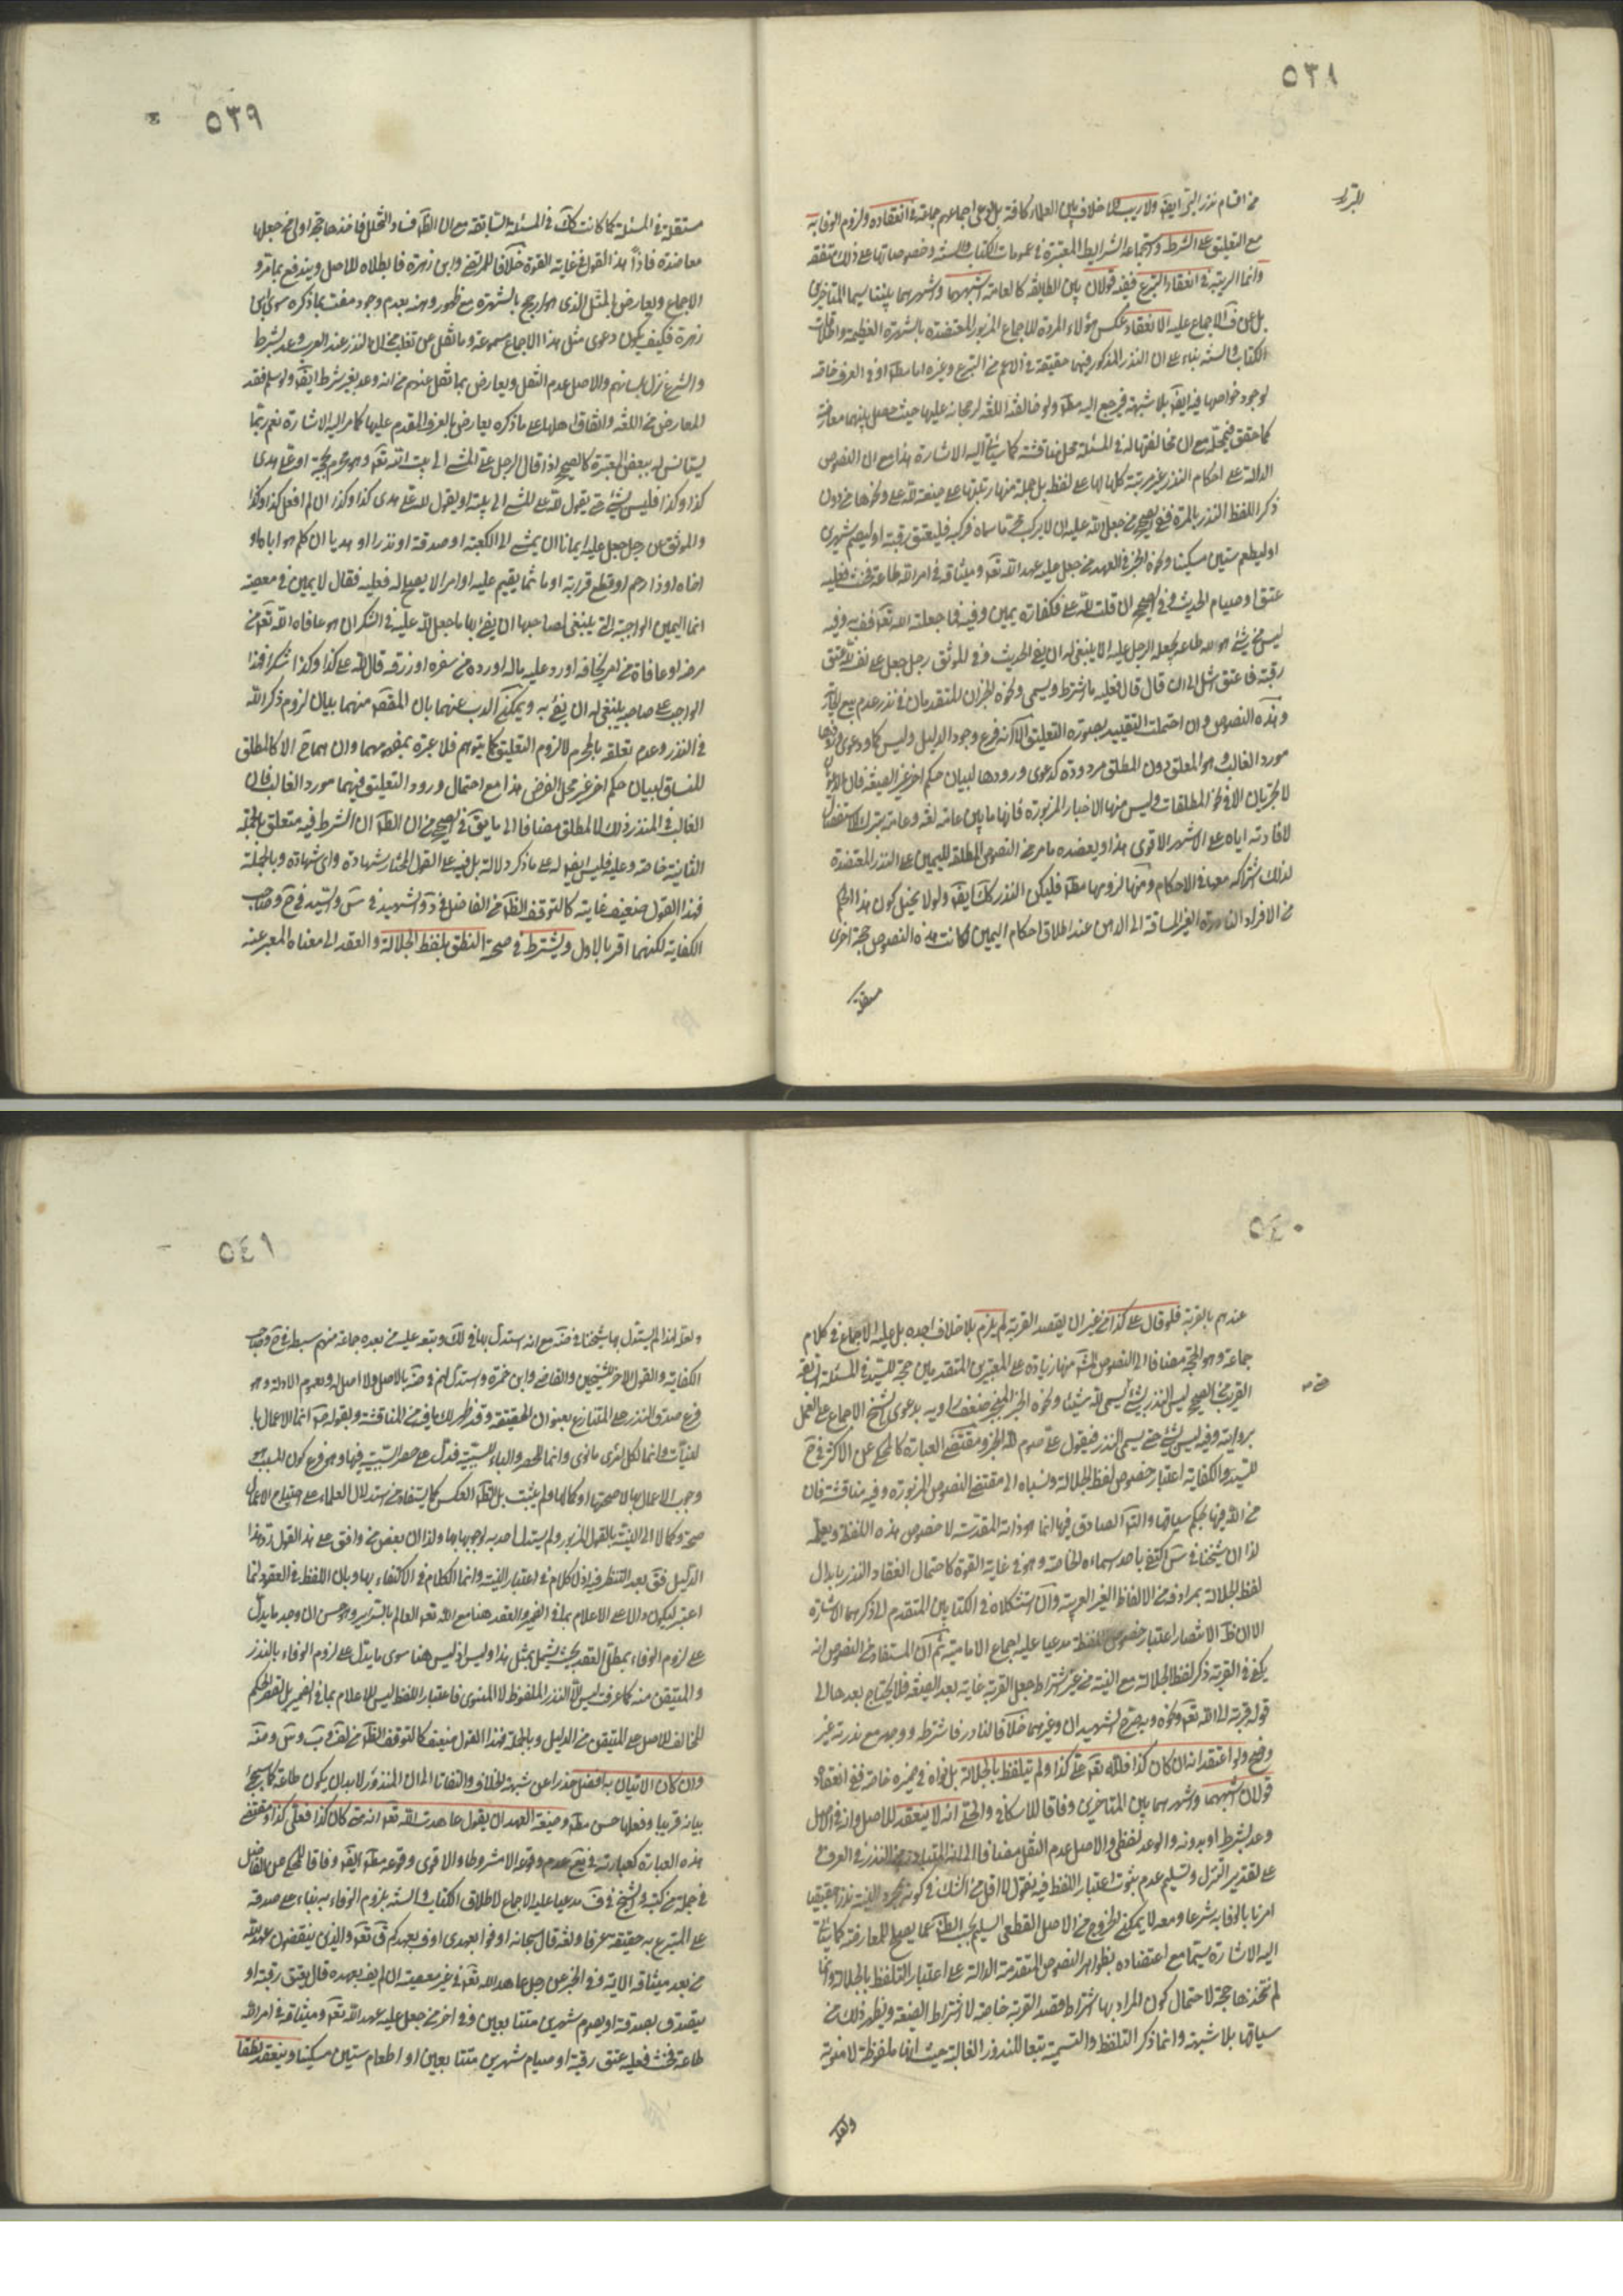 ٥٣٨
من اقسام نذر البر ايضا ولا ريب ولا خلاف بين العلماء كافة بل وعلى اجماعهم جماعة في انعقاده ولزوم الوفاء به
مع التعليق على الشرط واستجماعه الشرايط المعتبرة في عمومات الكتاب والسنة وخصوصاتها على ذلك متفقة
وانما الريبة في انعقاد التبرع ففيه قولان بين الطايفة كالعامة اشهرهما بيننا سيما المتأخرين
بل عن ف الاجماع عليه الانعقاد عكس هؤلاء المردة للاجماع المزبور المعتضدة بالشهرة العظيمة واطلاقات
الكتاب والسنة بناء على ان النذر المذكور فيهما حقيقة في الاعم من التبرع وغيره اما مط او في العرف خاصة
لوجود خواصها فيه ايض بلا شبهة فيرجع اليه مط ولو خالفته اللغة لرجحانه عليها حيث حصل بينهما معارضة
كما حقق في محله مع ان مخالفتها له في المسئلة محل مناقشة كما سيأتي اليه الاشارة هذا مع ان النصوص
الدالة على احكام النذر غير مرتبة كلها لها على لفظه بل جملة منها رتبتها على صيغة لله علي ونحوها من دون
ذكر اللفظ النذر بالمرة ففي الصحيح من جعل لله عليه ان لا يركب محرما سماه فركبه فليعتق رقبة او ليصم شهرين
او ليطعم ستين مسكينا ونحوه الخبر في العهد من جعل عليه عهد الله تع وميثاقه في امر الله طاعة فحنث فعليه
عتق او صيام الحديث وفي الصحيح ان قلت لله علي فكفارة يمين وفيه فما جعلته لله تع فف به وفيه
ليس من شئ هو لله طاعة يجعله الرجل عليه الا ينبغي له ان يفي الحديث وفي الموثق رجل جعل على نفسه لله عتق
رقبة فاعتق اشل الى ان قال قال فعليه ما اشترط ويسمي ونحوه الخبران المتقدمان في نذر عدم بيع الجارية
وهذه النصوص وان احتملت التقييد بصورة التعليق الا انه فرع وجود الدليل وليس كما ودعوى ورودها
مورد الغالب وهو المعلق دون المطلق مردودة كدعوى ورودها لبيان حكم اخر غير الصيغة فان الاولى
لا تجريان الا في نحو المطلقات وليس منها الاخبار المزبورة فانها ما بين عامة لغة وعامة بترك الاستفصال
لافادته اياه على الاشهر الاقوى هذا ويعضده ما مر من النصوص المطلقة لليمين على النذر المعتضدة
لذلك اشتراكه معها في الاحكام ومنها لزومها مط فليكن النذر كك ايض ولولا تخيل كون هذا الحكم
من الافراد النادرة الغير المنساقة الى الذهن عند اطلاق احكام اليمين لكانت هذه النصوص حجة اخرى
مستقلة
٥٣٩
مستقلة في المسئلة كما كانت كك في المسئلة السابقة مع ان الظ فساد التخيل فاخذها حجة اولى من جعلها
معاضدة فاذا هذا القول في غاية القوة خلافا للمرتضى وابن زهرة فابطلاه للاصل ويندفع بما مر و
الاجماع ويعارض بالمثل الذي هو ارجح بالشهرة مع ظهور وهنه بعدم وجود مفت بما ذكره سوى ابن
زهرة فكيف يكون دعوى مثل هذا الاجماع مسموعة وما نقل عن ثعلب من ان النذر عند العرب وعد بشرط
والشرع نزل بلسانهم والاصل عدم النقل ويعارض بما نقل عنهم من انه وعد بغير شرط ايض ولو سلم فقد
المعارض من اللغة واتفاق اهلها على ما ذكره يعارض بالعرف المقدم عليها كما مر اليه الاشارة نعم ربما
يستأنس له ببعض المعتبرة كالصحيح اذا قال الرجل علي المشي الى بيت الله تع وهو محرم بحجة او علي هدي
كذا وكذا فليس بشئ حتى يقول لله علي المشي الى بيته او يقول لله علي هدي كذا وكذا ان لم افعل كذا وكذا
والموثق عن رجل جعل عليه ايمانا ان يمشي الى الكعبة او صدقة او نذرا او هديا ان كلم هو اباه او
اخاه او ذا رحم او قطع قرابة او ماثما يقيم عليه او امر لا يصلح له فعليه فقال لا يمين في معصية
انما اليمين الواجبة التي ينبغي لصاحبها ان يفي بها ما جعل لله عليه في الشكر ان هو عافاه الله تع من
مرضه او عافاه من امر يخافه او رد عليه ماله او رده من سفره او رزقه قال لله علي كذا وكذا شكرا فهذا
الواجب على صاحبه ينبغي له ان يفي به ويمكن الذب عنهما بان المقص منهما بيان لزوم ذكر الله
في النذر وعدم تعلقه بالمحرم لا لزوم التعليق كما يتوهم فلا عبرة بمفهومهما وان هما ح الا كالمطلق
المنساق لبيان حكم اخر غير محل الفرض هذا مع احتمال ورود التعليق فيهما مورد الغالب فان
الغالب في المنذر ذلك لا المطلق مضافا الى ما يق في الصحيح من ان الظ ان الشرط فيه متعلق بالجملة
الثانية خاصة وعليه فليس ايض له على ما ذكر دلالة بل فيه على القول المختار شهادة واي شهادة وبالجملة
فهذا القول ضعيف غايته كالتوقف الظ من الفاضل في د والشهيد في س والسيد في ح وصاحب
الكفاية لكنهما اقر بالاول ويشترط في صحة النطق بلفظ الجلالة والعقد الى معناه المعبر عنه
٥٤٠
عندهم بالقربة فلو قال علي كذا من غير ان يقصد القربة لم يلزم بلا خلاف اجده بل عليه الاجماع في كلام
جماعة وهو الحجة مضافا الى النصوص منها زيادة على المعتبرين المتقدمين حجة للسيد في المسئلة السابقة
القريب من الصحيح ليس النذر بشئ حتى يسمي لله شيئا ونحوه الخبر المنجبر ضعف راويه بدعوى الشيخ الاجماع على العمل
بروايته وفيه ليس بشئ حتى يسمي النذر فيقول علي صوم لله الخبر ومقتضى العبارة كالمحكي عن الاكثر في ح
للسيد والكفاية اعتبار خصوص لفظ الجلالة ونسباه الى مقتضى النصوص المزبورة وفيه مناقشة فان
من الله فيها بحكم سياقها والتبادر الصادق فيها انما هو ذاته المقدسة لا خصوص هذه اللفظة ولعله
لذا ان شيخنا في س اكتفى باحد اسماءه الخاصة وهو في غاية القوة كاحتمال انعقاد النذر بابدال
لفظ الجلالة بمرادفه من الالفاظ الغير العربية وان استشكلاه في الكتابين المتقدم الى ذكرهما الاشارة
الا ان ظ الانتصار اعتبار خصوص اللفظة مدعيا عليه اجماع الامامية ثم ان المستفاد من النصوص انه
يكفي في القربة ذكر لفظ الجلالة مع النية من غير اشتراط جعل القربة غاية بعد الصيغة فلا يحتاج بعدها الى
قوله قربة الى الله تع ونحوه وبه صرح الشهيدان وغيرهما خلافا لنادر فاشترطه ووجهه مع ندرته غير
واضح ولو اعتقد انه ان كان كذا فلله تع علي كذا ولم يتلفظ بالجلالة بل نواه في ضميره خاصة ففي انعقاده
قولان اشبههما واشهرهما بين المتأخرين وفاقا للاسكافي والحلي انه لا ينعقد للاصل وانه في الاصل
وعد بشرط او بدونه والوعد لفظي والاصل عدم النقل مضافا الى انه المتبادر من النذر في العرف
على تقدير التنزل وتسليم عدم ثبوت اعتبار اللفظ فيه نقول لا اقل من الشك في كونه بمجرد النية نذرا حقيقيا
امرنا بالوفاء به شرعا ومعه لا يمكن الخروج من الاصل القطعي السليم بحسب الظ عما يصلح للمعارضة كما سيأتي
اليه الاشارة سيما مع اعتضاده بظواهر النصوص المتقدمة الدالة على اعتبار التلفظ بالجلالة وانما
لم نتخذها حجة لاحتمال كون المراد بها اشتراط قصد القربة خاصة لا اشتراط الصيغة ويظهر ذلك من
سياقها بلا شبهة وانما ذكر التلفظ والتسمية تبعا للنذور الغالبة حيث انها ملفوظة لا منوية
ولعله
٥٤١
ولعله لهذا لم يستدل بها شيخنا في ضه مع انه استدل بها في لك وتبعه عليه من بعده جماعة منهم سبطه في ح وصاحب
الكفاية والقول الاخر للشيخين والقاضي وابن حمزة واستدل لهم في ضه بالاصل ولا اصل له وعموم الادلة وهو
فرع صدق النذر على المتنازع بعنوان الحقيقة وقد ظهر لك ما فيه من المناقشة وبقوله ص انما الاعمال بال
لنيات وانما لكل امرئ ما نوى وانما للحصر والباء للسببية فدل على حصر السببية فيها وهو فرع كون السبب
وجوب الاعمال بها لا صحتها او كمالها ولم يثبت بل الظ العكس كما يستفاد من استدلال العلماء على احتياج الاعمال
صحة وكمالا الى النية بالقول المزبور ولم يستدل احد به لوجوبها بها ولذا ان بعض من وافق على هذا القول رد هذا
الدليل فق بعد التنظر فيه اذ لا كلام في اعتبار النية وانما الكلام في الاكتفاء بها وبان اللفظ في العقود انما
اعتبر ليكون دالا على الاعلام بما في الضمير والعقد هنا مع الله تع العالم بالسراير وهو حسن ان وجد ما يدل
على لزوم الوفاء بمطلق العقد بحيث يشمل بمثل هذا وليس اذ ليس هنا سوى ما يدل على لزوم الوفاء بالنذر
والمتيقن منه كما عرفت ليس الا النذر الملفوظ لا المنوي فاعتبار اللفظ ليس للاعلام بما في الضمير بل لقصر الحكم
المخالف للاصل على المتيقن من الدليل وبالجملة فهذا القول ضعيف كالتوقف الظ من لف ويب وس وضه
وان كان الاتيان به افضل حذرا عن شبهة الخلاف والتفاتا الى ان المنذور لا بد ان يكون طاعة كما سيجئ
بيانه قريبا وفعلها حسن مط وصيغة العهد ان يقول عاهدت الله تع انه متى كان كذا فعلي كذا ومقتضى
هذه العبارة كعبارته في يع عدم وقوعه الا مشروطا والاقوى وقوعه مط ايض وفاقا للمحكي عن الفاضل
في جملة من كتبه والشيخ في ف مدعيا عليه الاجماع لاطلاق الكتاب والسنة بلزوم الوفاء به بناء على صدقه
على المتبرع به حقيقة عرفا ولغة قال سبحانه اوفوا بعهدي اوف بعهدكم وق تع والذين ينقضون عهد الله
من بعد ميثاقه الاية وفي الخبر عن رجل عاهد الله تع في غير معصية ان لم يف بعهده قال يعتق رقبة او
يتصدق بصدقة او يصوم شهرين متتابعين وفي اخر من جعل عليه عهد الله تع وميثاقه في امر الله
طاعة فحنث فعليه عتق رقبة او صيام شهرين متتابعين او اطعام ستين مسكينا وينعقد نطقا